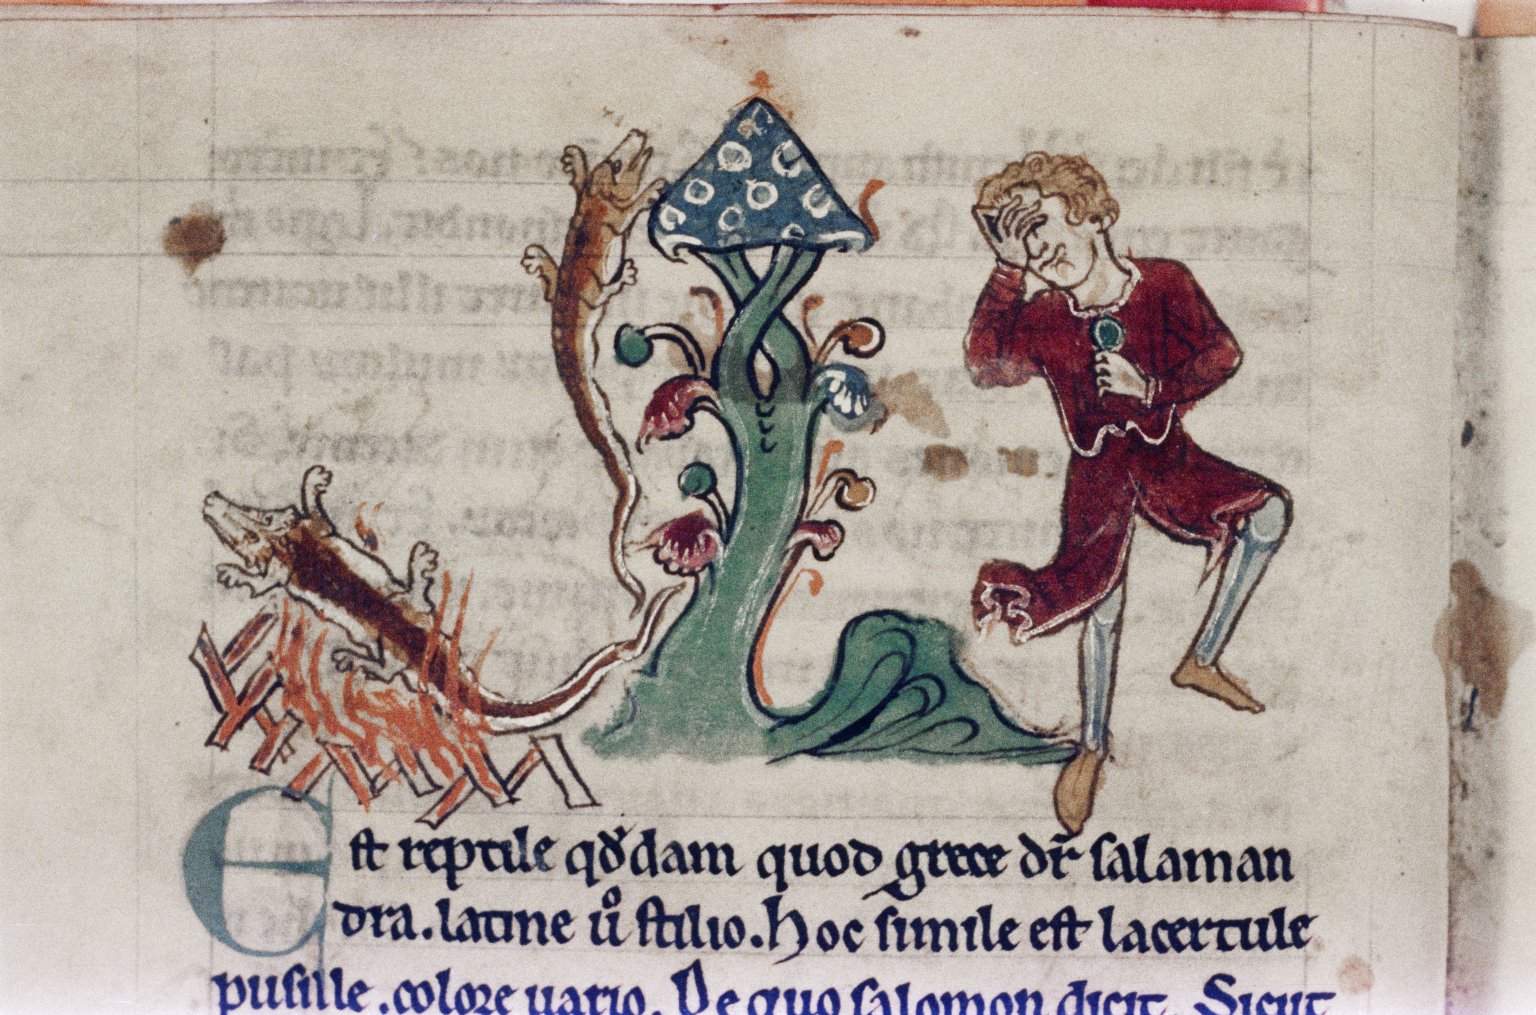 Est reptile qd̾dam quod grece dr̄ salaman
dra. latine ů stilio. Hoc simile est lacertule
pusille. colore uario. De quo salomon dicit. Sicut